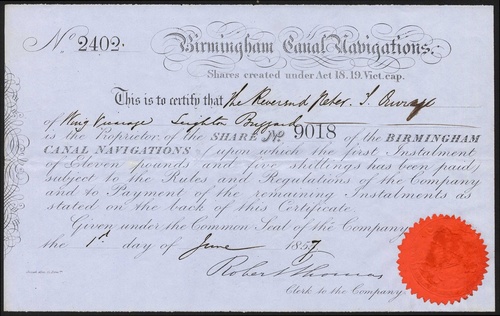 No. 2402.
Birmingham Canal Navigations.
Shares created under Act 18.19. Vict. cap.
This is to certify that The Reverend Peter T. Ouvry
of Wing Leighton Buzzard
is the Proprietor of the SHARE No. 9018 of the BIRMINGHAM
CANAL NAVIGATIONS, upon which the first Instalment
of Eleven pounds and five shillings has been paid,
subject to the Rules and Regulations of the Company
and to Payment of the remaining Instalments as
stated on the back of this Certificate.
Given under the Common Seal of the Company
the 1st day of June 1857
Robert Thomas
Clerk to the Company.